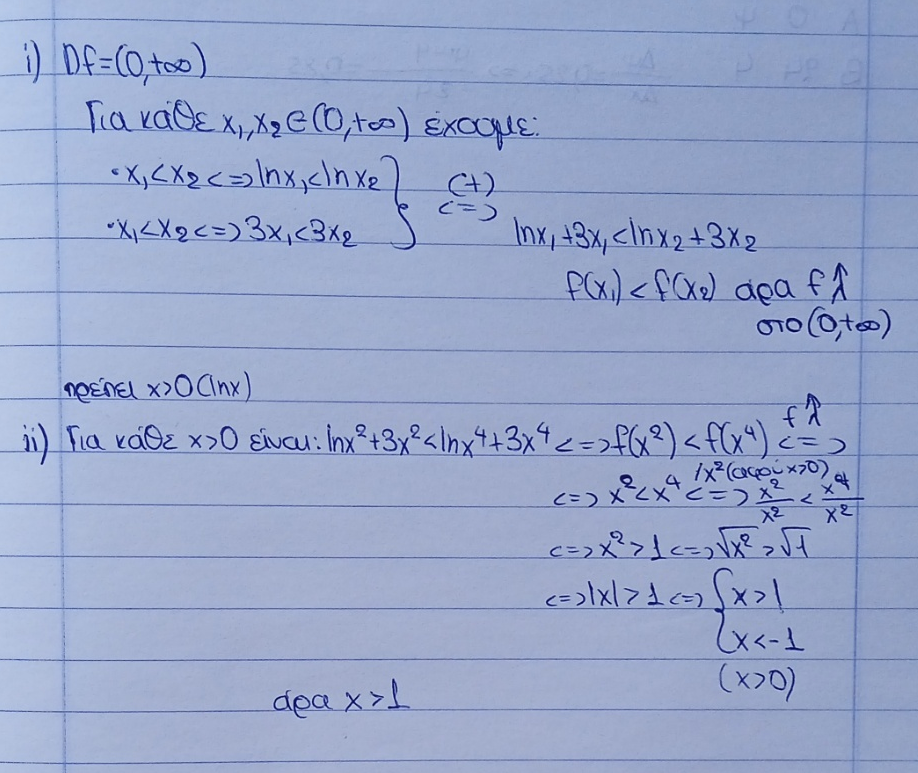 i) Df=(0,+∞)
Για κάθε x₁,x₂∈(0,+∞) έχουμε:
•x₁<x₂<=>lnx₁<lnx₂ } (+)
•x₁<x₂<=>3x₁<3x₂ } <=>
lnx₁+3x₁<lnx₂+3x₂
f(x₁)<f(x₂) άρα f↑
στο (0,+∞)
πρέπει x>0(lnx)
ii) Για κάθε x>0 είναι: lnx²+3x²<lnx⁴+3x⁴<=>f(x²)<f(x⁴) f↑ <=>
<=>x²<x⁴ /x²(αφού x>0) <=> x²/x² < x⁴/x²
<=>x²>1<=>√x²>√1
<=>|x|>1<=>{x>1
x<-1
(x>0)
άρα x>1